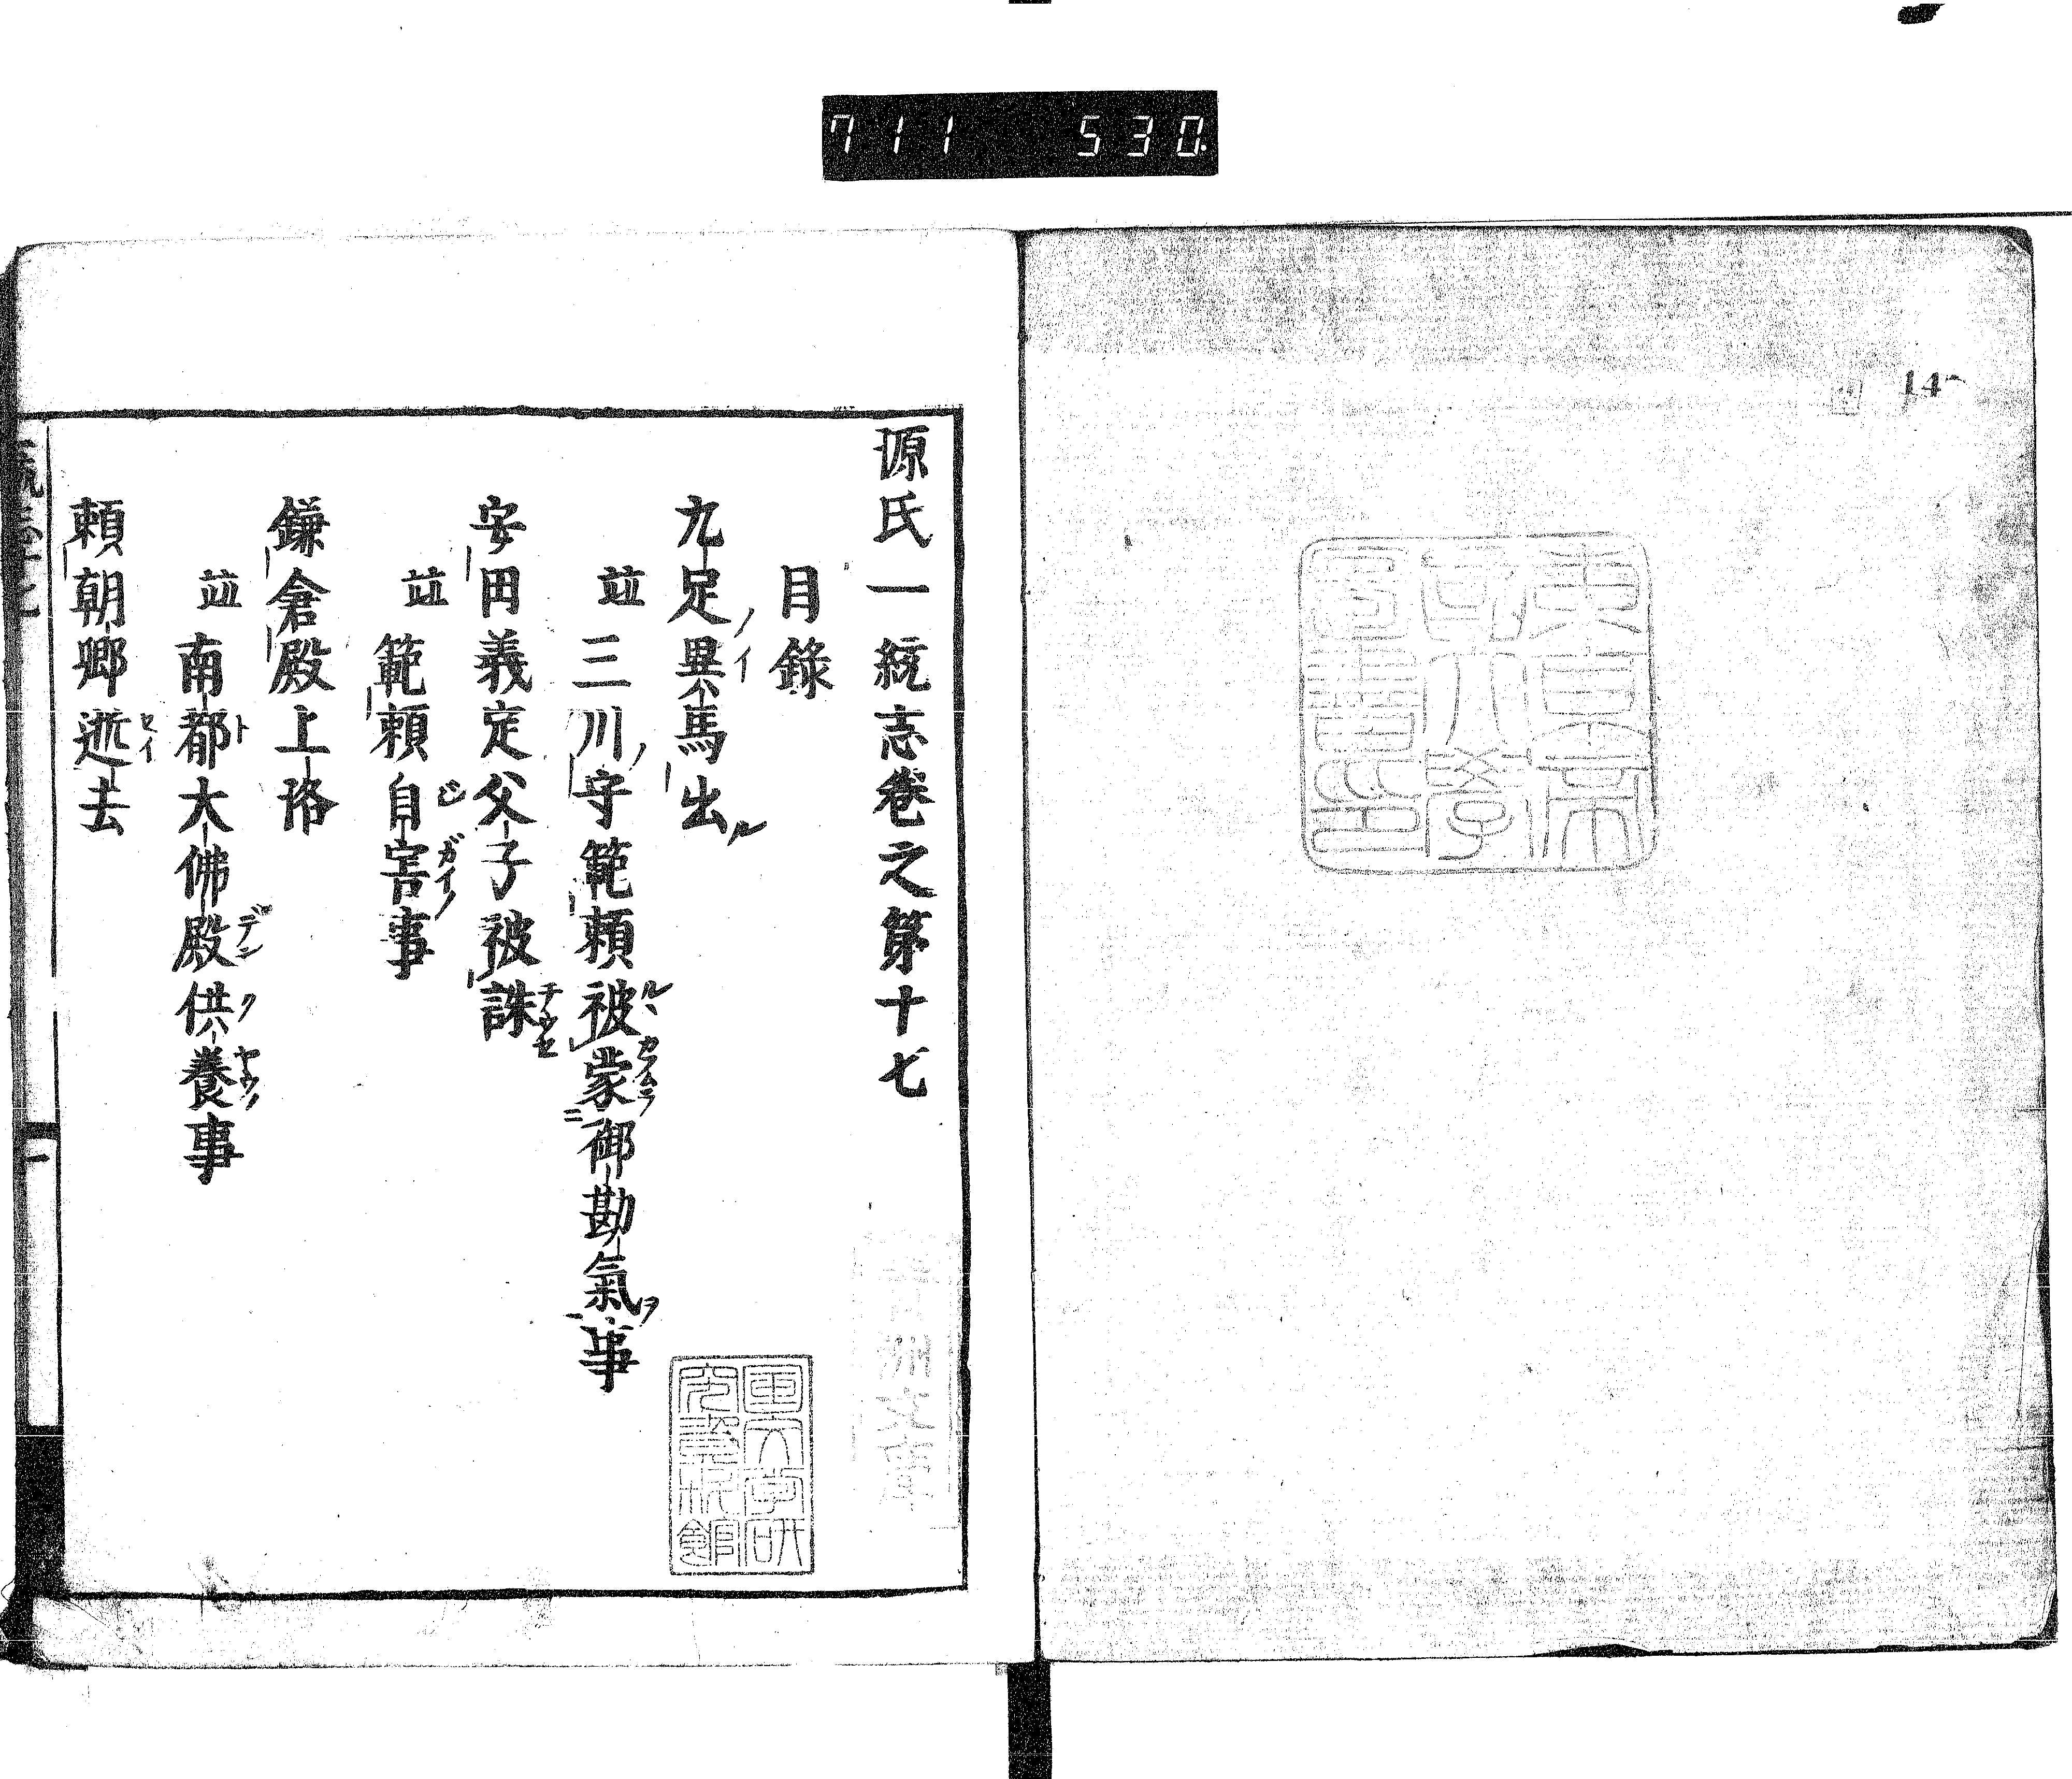 711 530
14
東京帝
國大學
圖書印
源氏一統志卷之第十七
目錄
九足異馬出ル
並三川ノ守範頼被蒙御勘氣事
安田義定父子被誅
並範頼自害事
鎌倉殿上洛
並南都大佛殿供養事
頼朝卿逝去
一